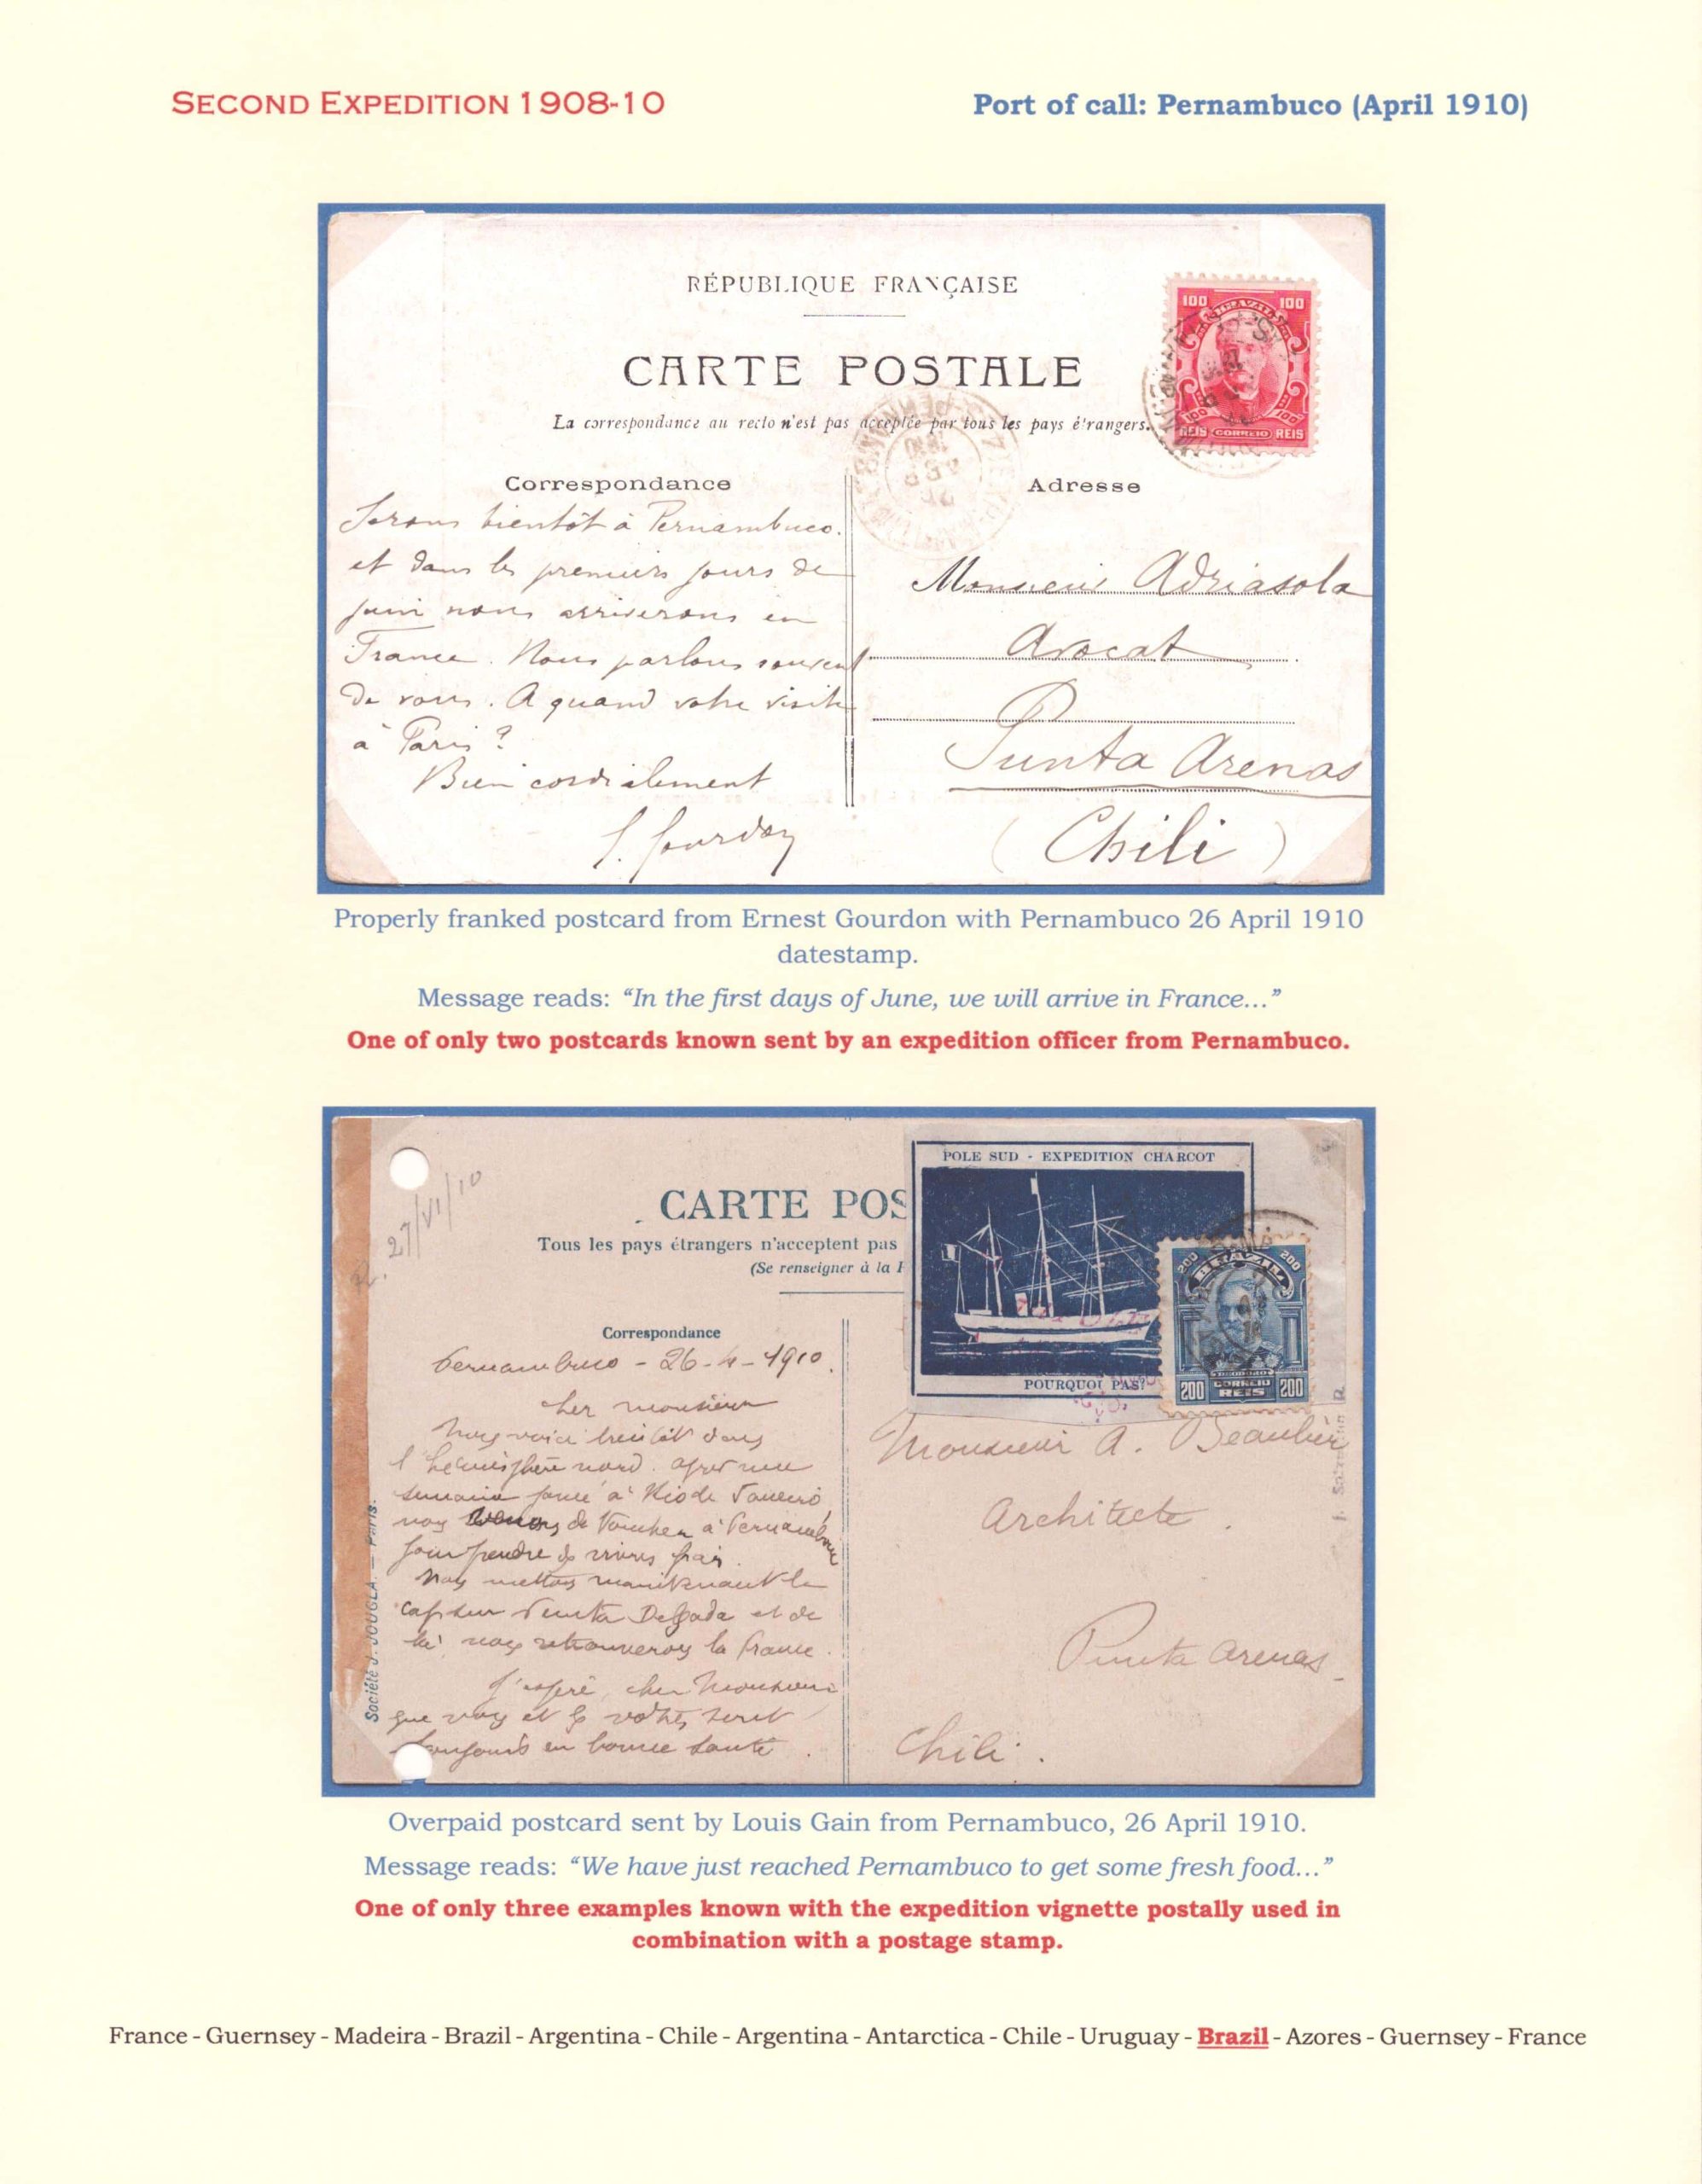 SECOND EXPEDITION 1908-10
Port of call: Pernambuco (April 1910)
RÉPUBLIQUE FRANÇAISE
CARTE POSTALE
La correspondance au recto n'est pas acceptée par tous les pays étrangers.
Correspondance
Serons bientôt à Pernambuco.
et dans les premiers jours de
juin nous arriverons en
France. Nous parlons souvent
de vous. A quand votre visite
à Paris ?
Bien cordialement
Adresse
Monsieur Adriasola
Avocat
Punta Arenas
(Chili)
100 BRAZIL 100
100 100
REIS CORREIO REIS
Properly franked postcard from Ernest Gourdon with Pernambuco 26 April 1910
datestamp.
Message reads: “In the first days of June, we will arrive in France…”
One of only two postcards known sent by an expedition officer from Pernambuco.
27/VI/10
CARTE POS
Tous les pays étrangers n'acceptent pas
(Se renseigner à la P
Correspondance
Pernambuco - 26-4-1910.
Cher monsieur
Nous voici bientôt dans
l'hémisphère nord. après une
semaine à Rio de Janeiro,
nous de toucher à Pernambuco
pour prendre des vivres frais.
Nous mettons maintenant le
cap sur Punta Delgada et de
là nous retrouverons la France.
J'espère, cher Monsieur
que vous et les vôtres sont
toujours en bonne santé.
Société J. JOUGLA. — PARIS.
POLE SUD - EXPEDITION CHARCOT
POURQUOI PAS?
200 BRAZIL 200
200 CORREIO REIS 200
Monsieur A. Beaulier
Architecte.
Punta Arenas
Chili.
Overpaid postcard sent by Louis Gain from Pernambuco, 26 April 1910.
Message reads: “We have just reached Pernambuco to get some fresh food…”
One of only three examples known with the expedition vignette postally used in
combination with a postage stamp.
France - Guernsey - Madeira - Brazil - Argentina - Chile - Argentina - Antarctica - Chile - Uruguay - Brazil - Azores - Guernsey - France